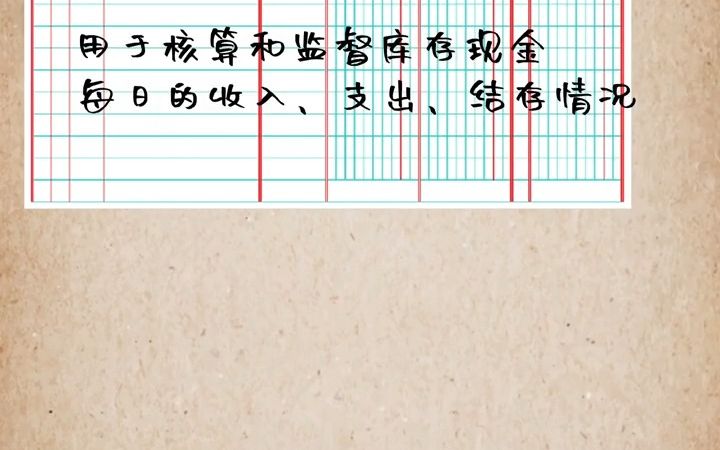 用于核算和监督库存现金
每日的收入、支出、结存情况